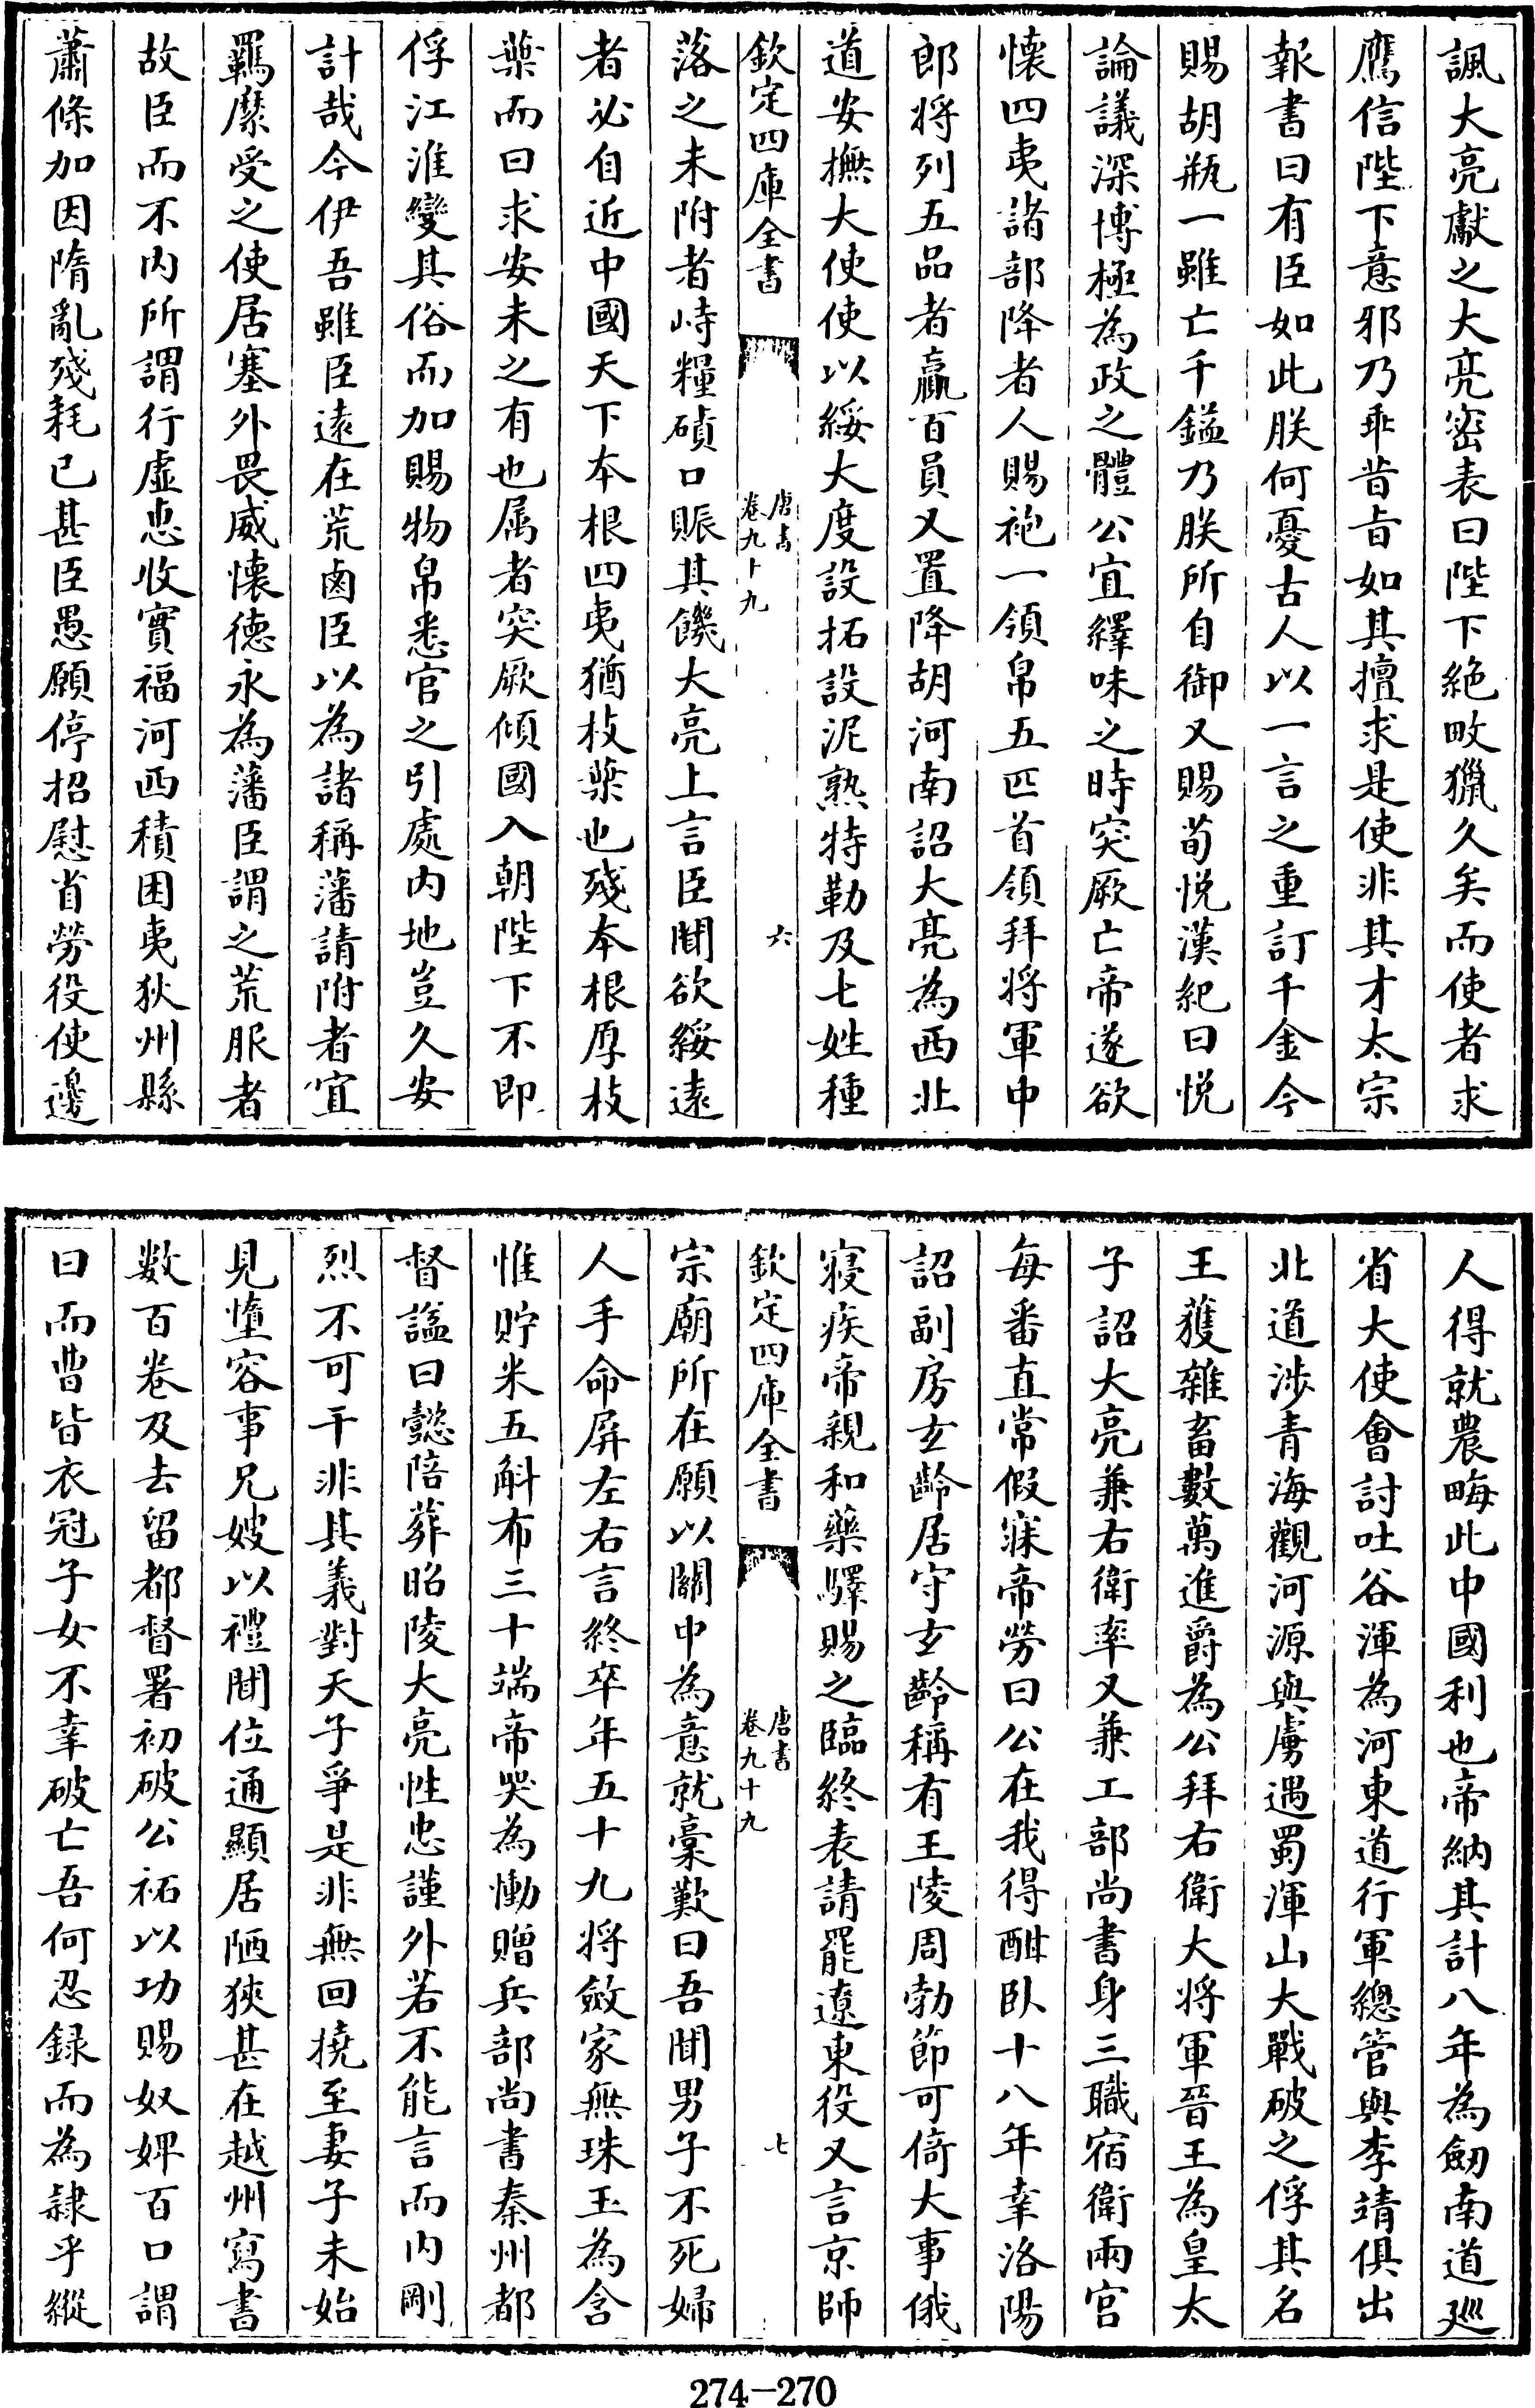 諷大亮獻之大亮密表曰陛下絶畋獵久矣而使者求
鷹信陛下意邪乃乖昔㫖如其擅求是使非其才太宗
報書曰有臣如此朕何憂古人以一言之重訂千金今
賜胡瓶一雖亡千鎰乃朕所自御又賜荀悅漢紀曰悅
論議深博極為政之體公宜繹味之時突厥亡帝遂欲
懷四夷諸部降者人賜袍一領帛五匹首領拜將軍中
郎將列五品者贏百員又置降胡河南詔大亮為西北
道安撫大使使以綏大度設拓設泥熟特勒及七姓種
欽定四庫全書
唐書
卷九十九
六
落之未附者峙糧磧口賑其饑大亮上言臣聞欲綏遠
者必自近中國天下本根四夷猶枝葉也殘本根厚枝
葉而曰求安未之有也属者突厥傾國入朝陛下不即
俘江淮變其俗而加賜物帛悉官之引處内地豈久安
計哉今伊吾雖臣遠在荒鹵臣以為諸稱藩請附者宜
羈縻受之使居塞外畏威懷德永為藩臣謂之荒服者
故臣而不内所謂行虛惠收實福河西積困夷狄州縣
蕭條加因隋亂殘耗已甚臣愚願停招慰省勞役使邊
人得就農畮此中國利也帝納其計八年為劒南道廵
省大使會討吐谷渾為河東道行軍總管與李靖俱出
北道涉青海觀河源與虜遇蜀渾山大戰破之俘其名
王獲雜畜數萬進爵為公拜右衛大將軍晉王為皇太
子詔大亮兼右衛率又兼工部尚書身三職宿衛兩宫
每番直常假寐帝勞曰公在我得酣臥十八年幸洛陽
詔副房玄齡居守玄齡稱有王陵周勃節可倚大事俄
寢疾帝親和藥驛賜之臨終表請罷遼東役又言京師
欽定四庫全書
唐書
卷九十九
七
宗廟所在願以關中為意就槀歎曰吾聞男子不死婦
人手命屏左右言終卒年五十九將斂家無珠玉為含
惟貯米五斛布三十端帝哭為慟贈兵部尚書秦州都
督諡曰懿陪葬昭陵大亮性忠謹外若不能言而内剛
烈不可干非其義對天子爭是非無回撓至妻子未始
見惰容事兄嫂以禮聞位通顯居陋狹甚在越州寫書
数百卷及去留都督署初破公祏以功賜奴婢百口謂
曰而曹皆衣冠子女不幸破亡吾何忍録而為隷乎縱
274-270